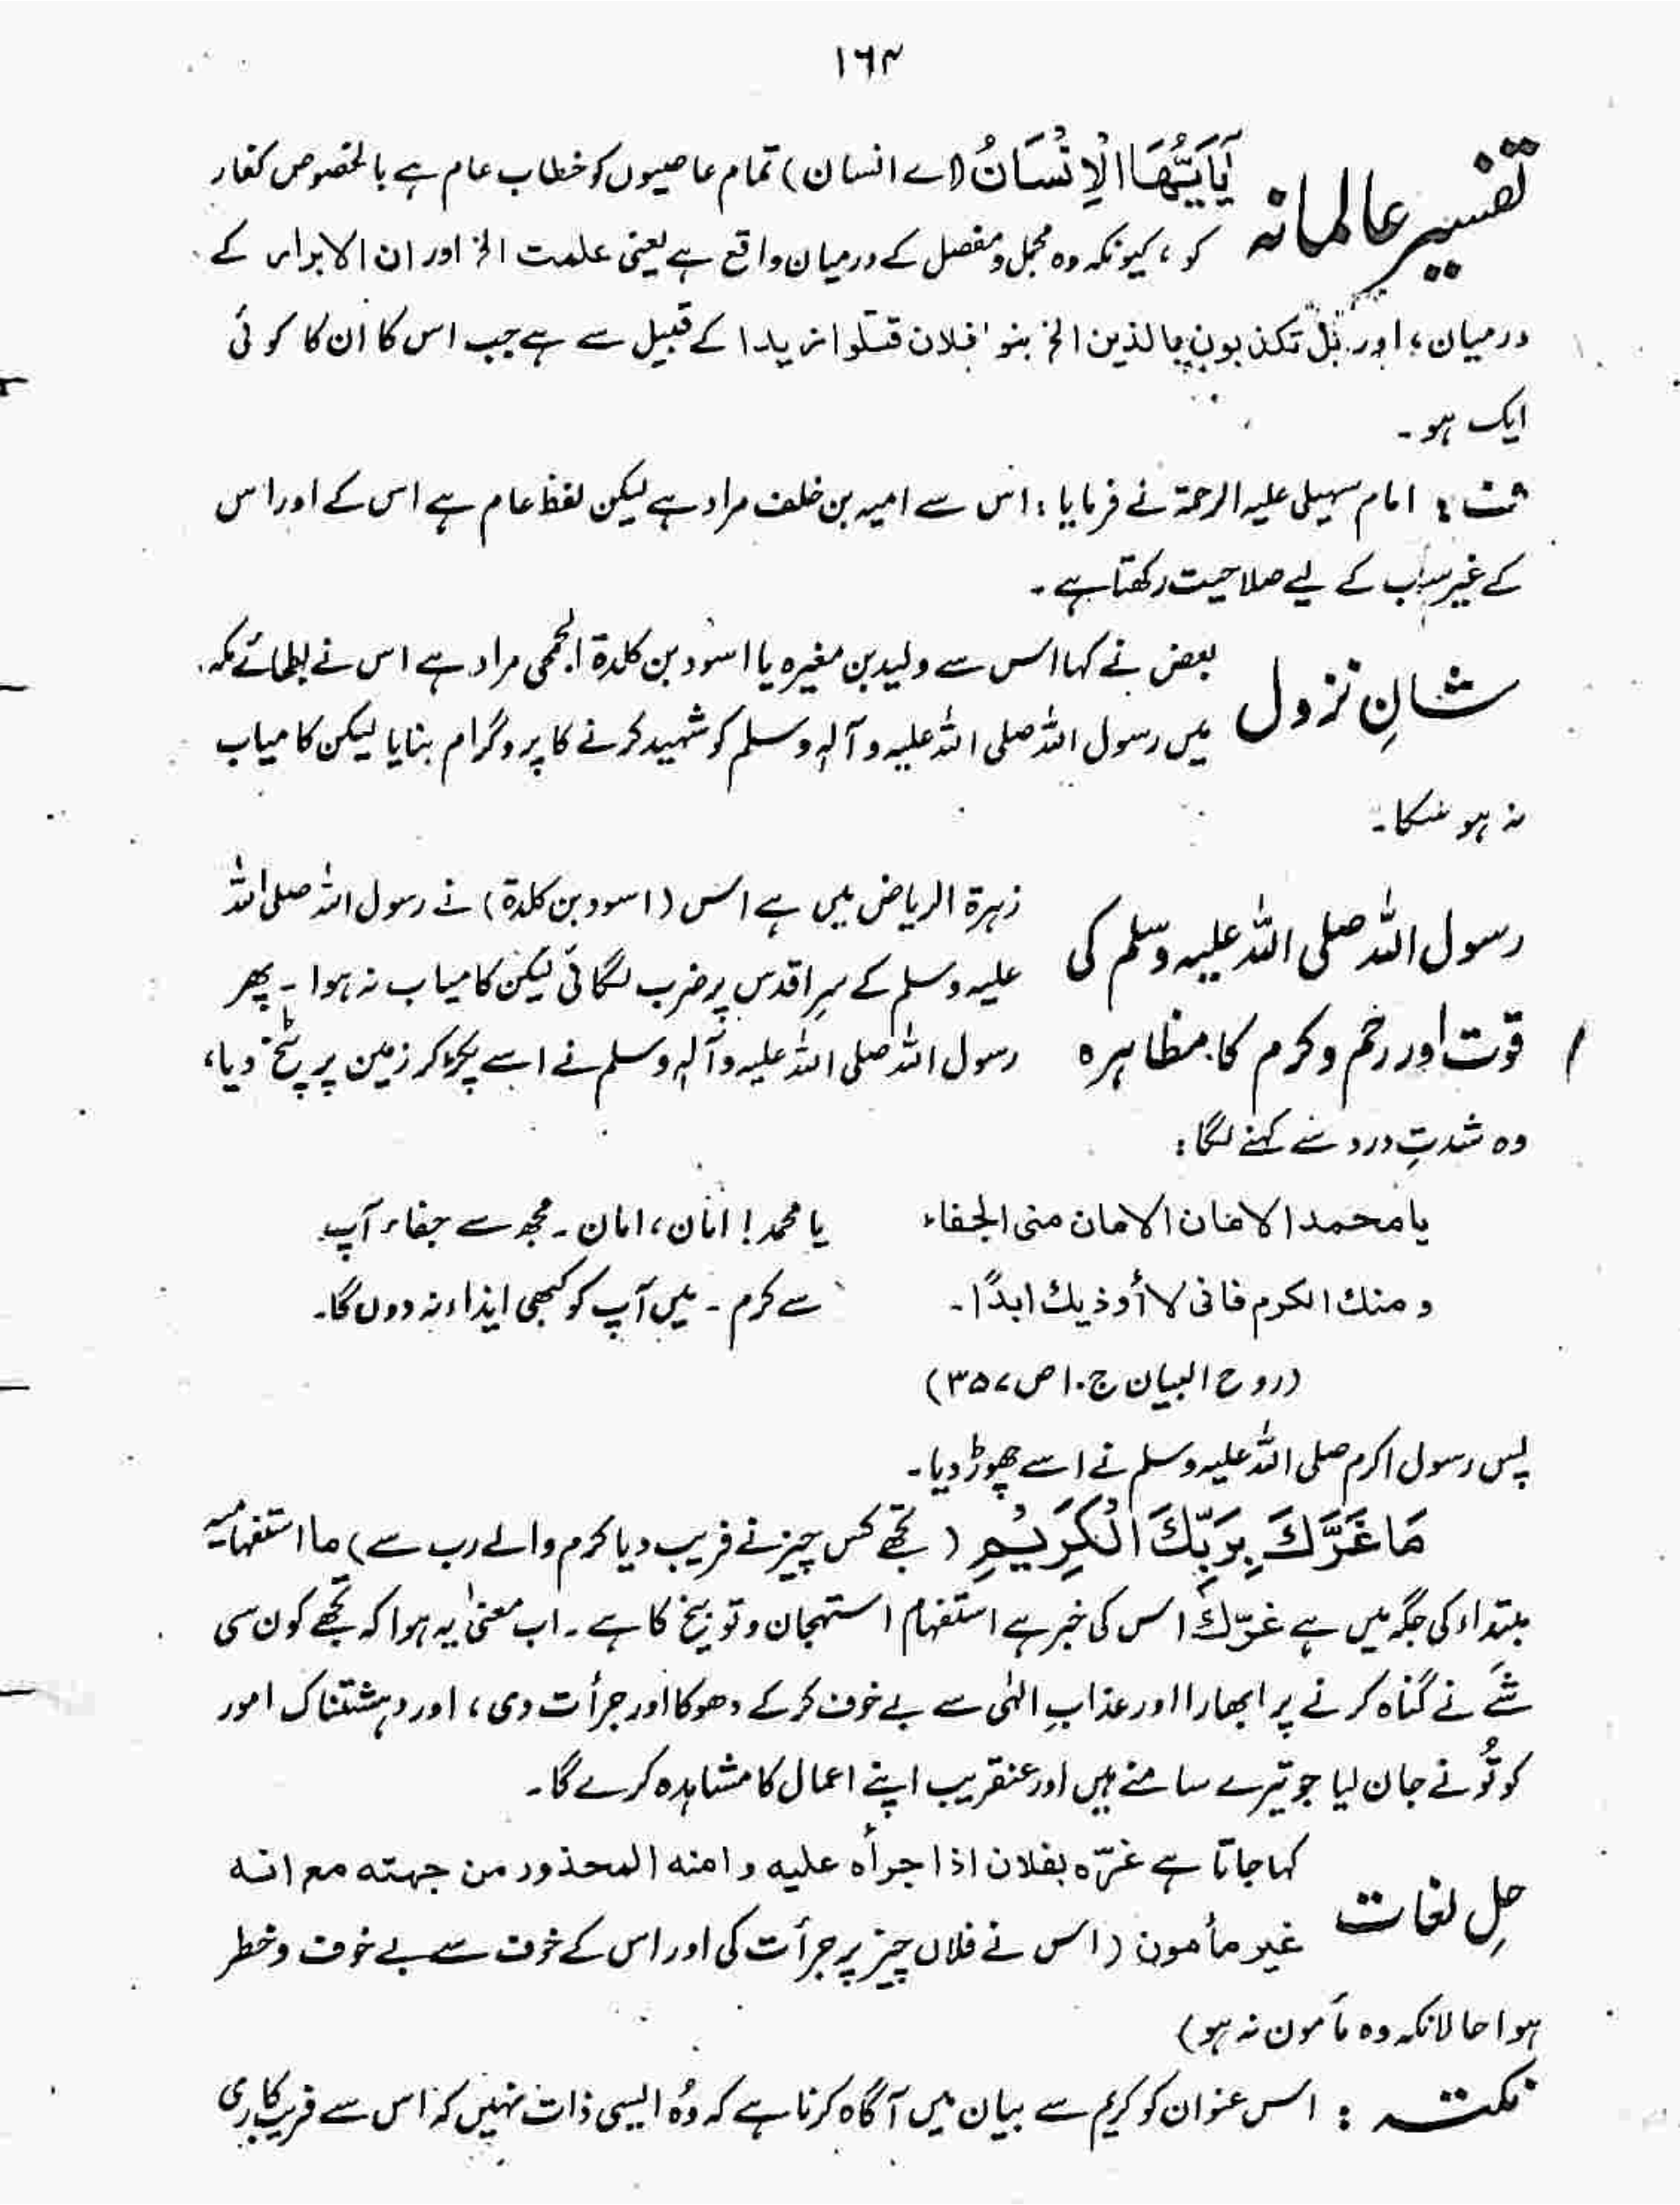 ١٦٣
تفسیر عالمانہ
يَآاَيُّهَا الْاِنْسَانُ (اے انسان) تمام عاصیوں کو خطاب عام ہے بالخصوص کفار
کو ، کیونکہ وہ مجمل و مفصل کے درمیان واقع ہے یعنی علمت الخ اور ان الابرار کے
درمیان ، اور بل تکذبون بالذین الخ بنو فلان قتلوا زیدا کے قبیل سے ہے جب اس کا ان کا کوئی
ایک ہو ۔
ف : امام سہیلی علیہ الرحمۃ نے فرمایا : اس سے امیہ بن خلف مراد ہے لیکن لفظ عام ہے اس کے اور اس
کے غیر سب کے لیے صلاحیت رکھتا ہے ۔
شانِ نزول
بعض نے کہا اس سے ولید بن مغیرہ یا اسود بن کلدۃ الجمحی مراد ہے اس نے بطحائے مکہ
میں رسول اللہ صلی اللہ علیہ و آلہٖ وسلم کو شہید کرنے کا پروگرام بنایا لیکن کامیاب
نہ ہو سکا ۔
رسول اللہ صلی اللہ علیہ وسلم کی
قوت اور رحم و کرم کا مظاہرہ
زہرۃ الریاض میں ہے اس (اسود بن کلدۃ) نے رسول اللہ صلی اللہ
علیہ وسلم کے سرِ اقدس پر ضرب لگائی لیکن کامیاب نہ ہوا ۔ پھر
رسول اللہ صلی اللہ علیہ وآلہٖ وسلم نے اسے پکڑ کر زمین پر پٹخ دیا ،
وہ شدتِ درد سے کہنے لگا :
یا محمد الامان الامان منی الجفاء
یا محمد ! امان ، امان ۔ مجھ سے جفاء آپ
و منك الكرم فانی لا أوذيك ابدًا ۔
سے کرم ۔ میں آپ کو کبھی ایذاء نہ دوں گا ۔
(روح البیان ج ۱۰ ص ۳۵۷)
پس رسول اکرم صلی اللہ علیہ وسلم نے اسے چھوڑ دیا ۔
مَا غَرَّكَ بِرَبِّكَ الْكَرِيْمِ (تجھے کس چیز نے فریب دیا کرم والے رب سے) ما استفہامیہ
مبتداء کی جگہ میں ہے غرّك اس کی خبر ہے استفہام استہجان و توبیخ کا ہے ۔ اب معنیٰ یہ ہوا کہ تجھے کون سی
شَے نے گناہ کرنے پر ابھارا اور عذابِ الٰہی سے بے خوف کر کے دھوکا اور جرأت دی ، اور دہشتناک امور
کو تُو نے جان لیا جو تیرے سامنے ہیں اور عنقریب اپنے اعمال کا مشاہدہ کرے گا ۔
حلِ لغات
کہا جاتا ہے غرّہ بفلان اذا جرأہ علیه و امنه المحذور من جهته مع انه
غیر مأمون (اس نے فلاں چیز پر جرأت کی اور اس کے خوف سے بے خوف و خطر
ہوا حالانکہ وہ مأمون نہ ہو)
نکتہ : اس عنوان کو کریم سے بیان میں آگاہ کرنا ہے کہ وُہ ایسی ذات نہیں کہ اس سے فریب کاری